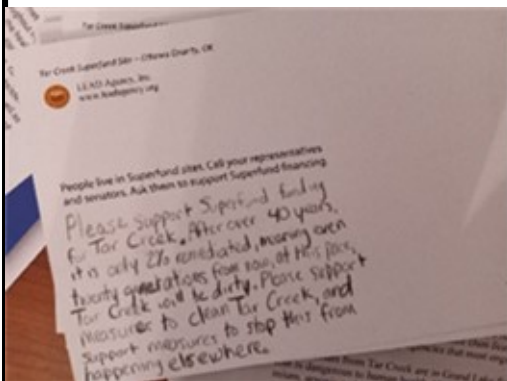 Tar Creek Superfund
Tar Creek Superfund Site – Ottawa County, OK
LEAD Agency, Inc.
www.leadagency.org
People live in Superfund sites. Call your representatives
and senators. Ask them to support Superfund financing.
Please support Superfund funding
for Tar Creek. After over 40 years,
it is only 2% remediated, meaning even
twenty generations from now, at this pace,
Tar Creek will be dirty. Please support
measures to clean Tar Creek, and
support measures to stop this from
happening elsewhere.
from Tar Creek are in Grand Lake
dangerous to human